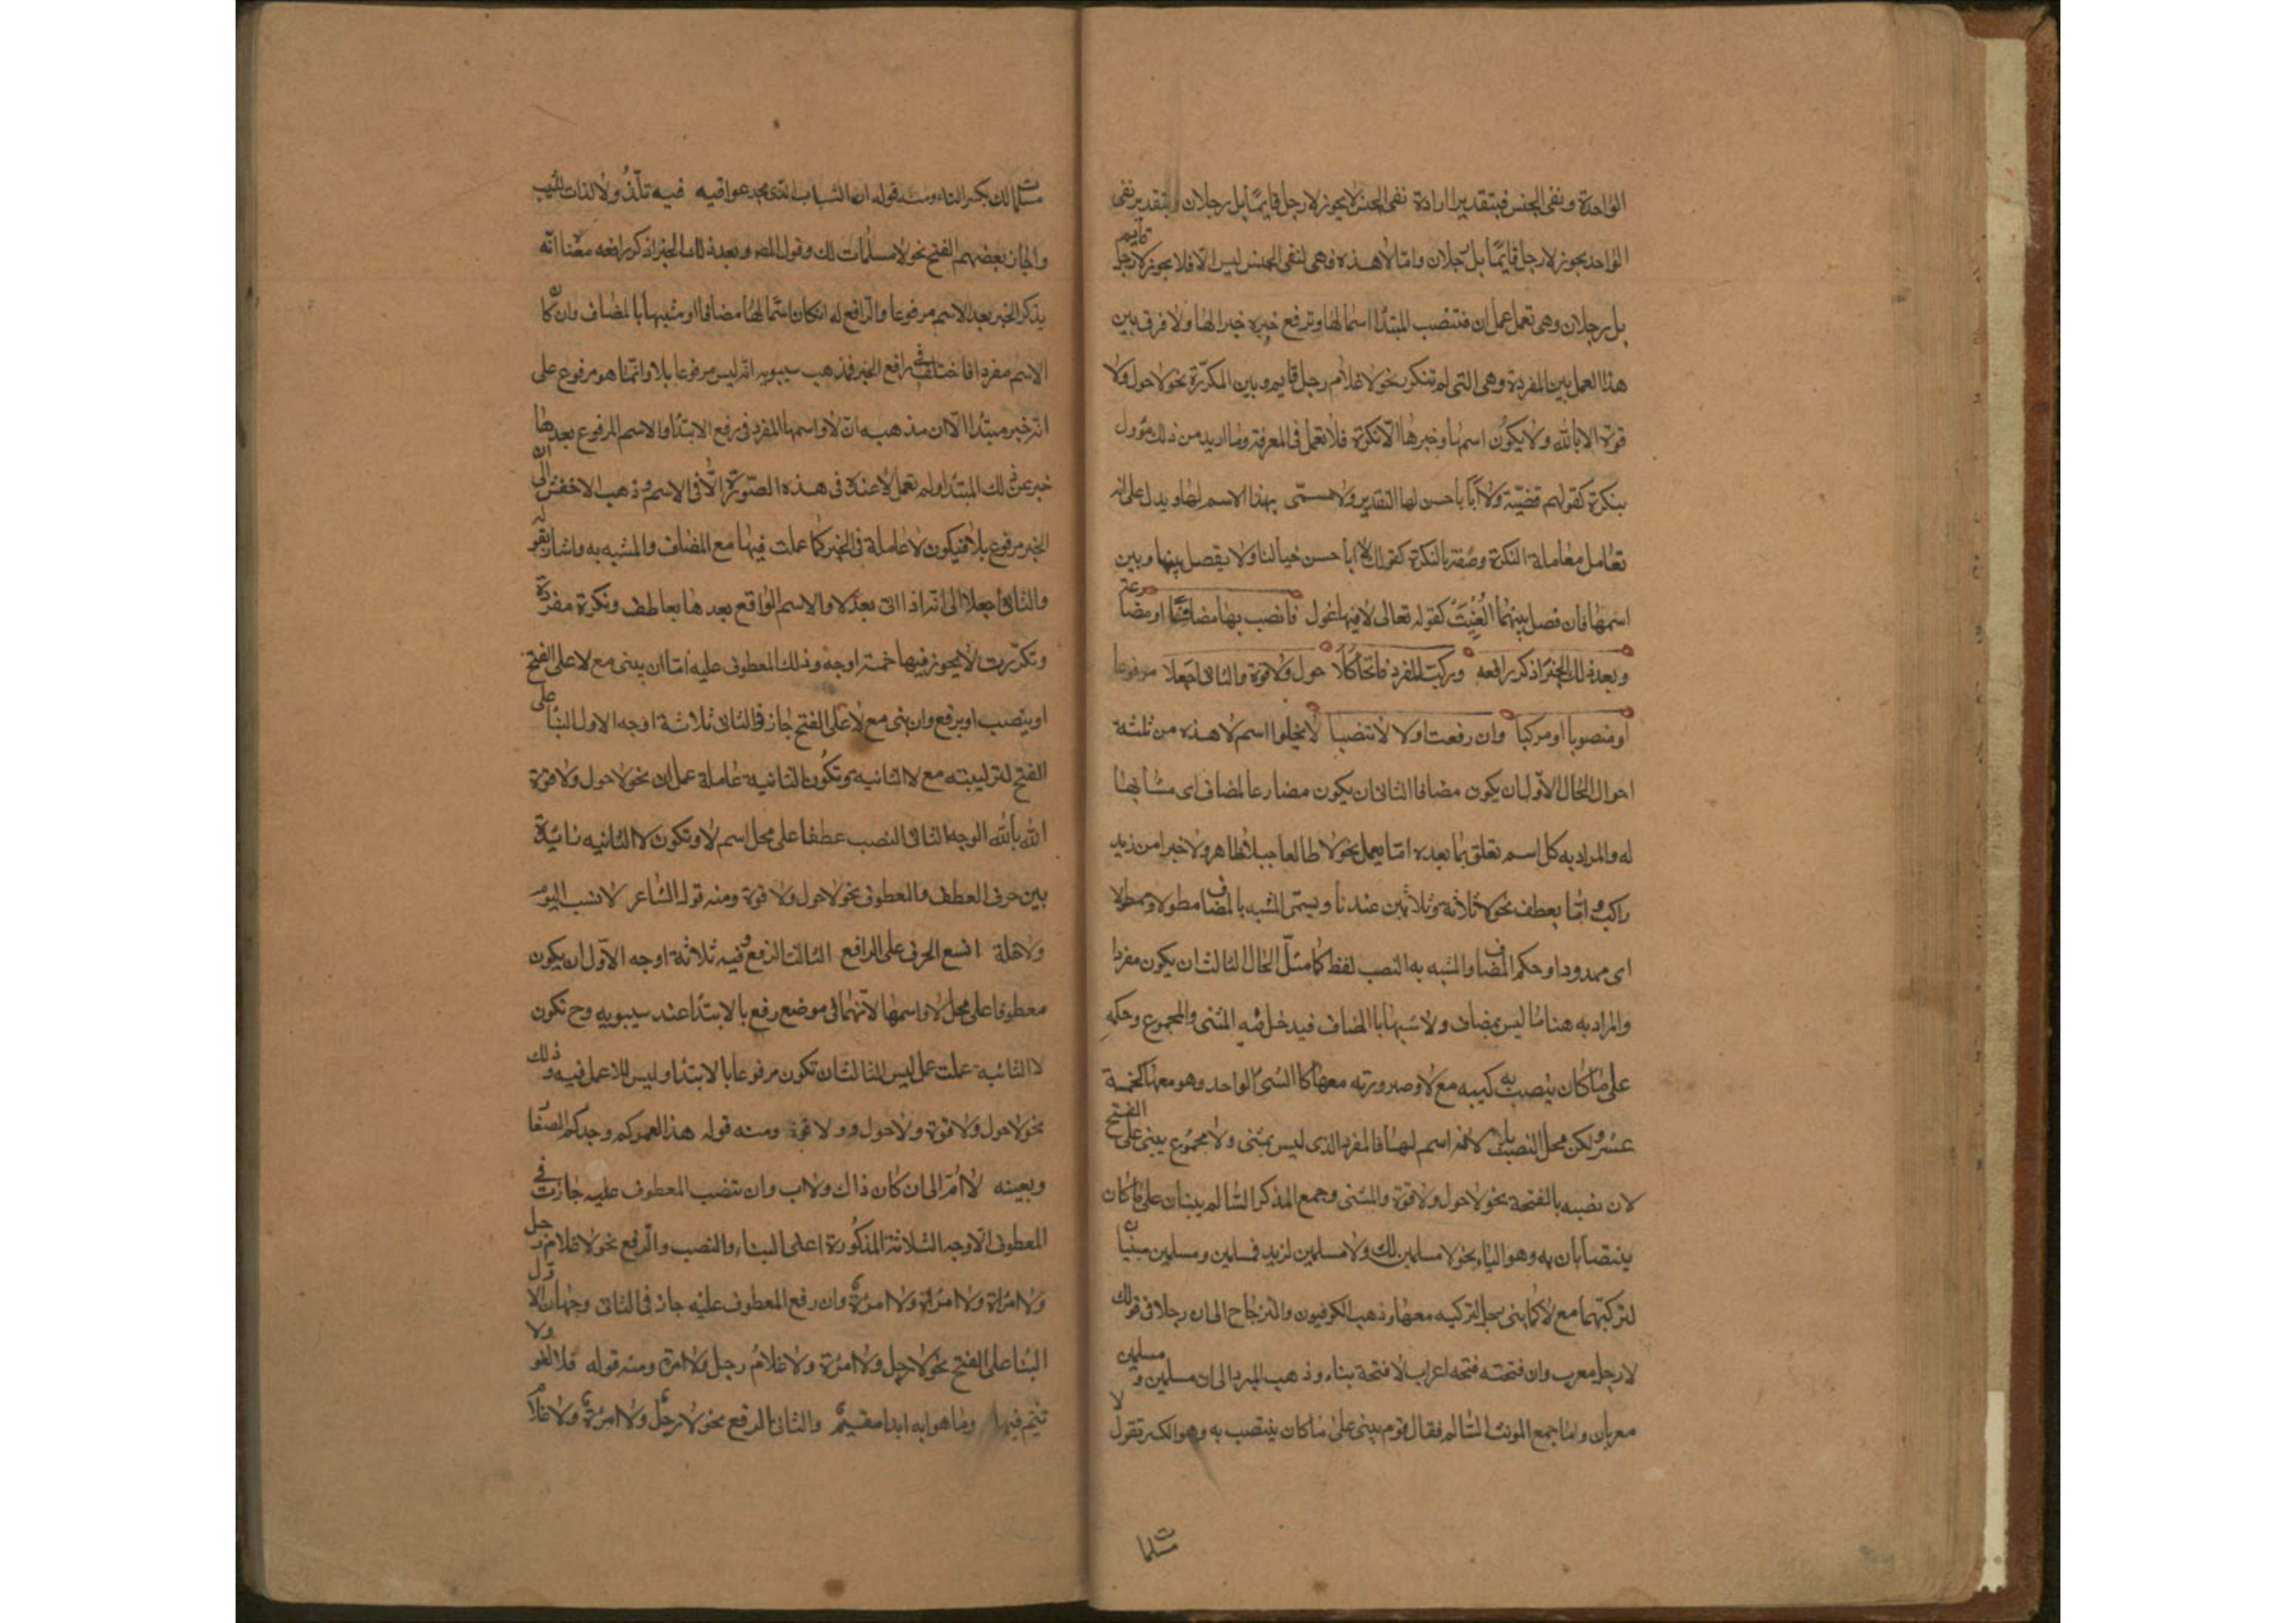 الواحدة ونفى الجنس فبتقدير ارادة نفى الجنس لايجوز لارجل قايمًا بل رجلان وبتقدير نفى
الواحد يجوز لارجل قايمًا بل رجلان وامّا لا هذه فهى لنفى الجنس ليس الا فلا يجوز لارجل قايم
بل رجلان وهى تعمل عمل ان فتنصب المبتدا اسما لها وترفع خبره خبرا لها ولا فرق بين
هذا العمل بين المفردة وهى التى لم تتكرر نحو لا غلام رجل قايم وبين المكررة نحو لاحول ولا
قوة الا بالله ولا يكون اسمها وخبرها الّا نكرة فلا تعمل فى المعرفة وما اريد من ذلك مؤول
بنكرة كقولهم قضيّة ولا أبا حسن لها التقدير ولا مسمّى بهذا الاسم لها ويدل على انه
تعامل معاملة النكرة وصفته بالنكرة كقولك لا ابا حسن خيالنا ولا يفصل بينها وبين
اسمها فان فصل بينهما الغيت كقوله تعالى لا فيها غول فانصب بها مضافا او مضارعه
وبعد ذلك الخبر اذكر رافعه وركب المفرد فاتحا كلا حول ولا قوة والثانى اجعلا مرفوعا
او منصوبا او مركبا وان رفعت اولا لا تنصبا لايخلوا اسم لا هذه من ثلثة
احوال الحال الاوّل ان يكون مضافا الثانى ان يكون مضارعا لمضاف اى مشابها
له والمراد به كل اسم تعلق بما بعده امّا بعمل نحو لا طالعا جبلا ظاهر ولا خيرا من زيد
راكب وامّا بعطف نحو لا ثلاثة وثلاثين عندنا ويسمى المشبه بالمضاف مطولا وممطولا
اى ممدودا وحكم المضاف والمشبه به النصب لفظا كما مثل الحال الثالث ان يكون مفردا
والمراد به هنا ما ليس بمضاف ولا مشبها بالمضاف فيدخل فيه المثنى والمجموع وحكمه
على ما كان ينصب به كيبه مع لا وصيرورته معها كا الشئ الواحد وهو معها كخمسة
عشر ولكن محل النصب بلا لانه اسم لها فالمفرد الذى ليس بمثنى ولا مجموع يبنى على الفتح
لان نصبه بالفتحة نحو لاحول ولا قوة والمثنى وجمع المذكر السّالم يبنان على ما كان
ينتصبان به وهو الياء نحو لا مسلمين لك ولا مسلمين لزيد فمسلمين ومسلمين مبنيان
لتركبهما مع لا كما بنى رجل لتركبه معها وذهب الكوفيون والزجاج الى ان رجلا فى قولك
لا رجل معرب وان فتحته فتحه اعراب لا فتحة بناء وذهب المبرد الى ان مسلمين ومسلمين
معربان واما جمع المونث السّالم فقال قوم يبنى على ما كان ينتصب به وهو الكسر تقول لا
مسلمات
مسلمات لك بكسر التاء ومنه قوله ان الشباب الذى مجد عواقبه فيه تلذّ ولا لذات للشيب
واجاز بعضهم الفتح نحو لا مسلمات لك وقول المصـ وبعد ذلك الخبر اذكر رافعه معناه انّه
يذكر الخبر بعد الاسم مرفوعا والرّافع له ان كان اسمها مضافا او مشبها بالمضاف وان كان
الاسم مفردا فاختلف فى رافع الخبر فذهب سيبويه انه ليس مرفوعا بلا وانّما هو مرفوع على
انه خبر مبتدا الا ان مذهبه انّ لا واسمها المفرد فى رفع الابتدا والاسم المرفوع بعدها
خبر عن ذلك المبتدا ولم تعمل لا عنده فى هذه الصّورة الّا فى الاسم وذهب الاخفش الى ان
الخبر مرفوع بلا فيكون لا عاملة فى الخبر كما عملت فيها مع المضاف والمشبه به واشار بقوله
والثانى اجعلا الى انه اذا اتى بعد لا والاسم الواقع بعدها بعاطف ونكرة مفردة
وتكرّرت لا يجوز فيها خمسة اوجه وذلك المعطوف عليه امّا ان يبنى مع لا على الفتح
او ينصب او يرفع وان بنى مع لا على الفتح جاز فى الثانى ثلاثة اوجه الاول البنا على
الفتح لتركيبته مع لا الثانية وتكون الثانية عاملة عمل ان نحو لاحول ولا قوة
الا بالله الوجه الثانى النصب عطفا على محل اسم لا وتكون لا الثانيه زائدة
بين حرف العطف والمعطوف نحو لاحول ولا قوة ومنه قوله الشاعر لا نسب اليوم
ولا خلة اتسع الحرف على الراقع الثالث الرفع وفيه ثلاثة اوجه الاوّل ان يكون
معطوفا على محل لا واسمها لانّهما فى موضع رفع بالابتدا عند سيبويه وح تكون
لا الثانية عملت عمل ليس الثالث ان تكون مرفوعا بالابتدا وليس للا عمل فيه وذلك
نحو لاحول ولا قوة ولا حول ولا قوة ومنه قوله هذا لعمركم وجدكم الصغار
وبعينه لا امّ الى ان كان ذاك ولا اب وان تنصب المعطوف عليه جازت فى
المعطوف الاوجه الثلاثة المذكورة اعلى البناء والنصب والرفع نحو لا غلام رجل
ولا امراة ولا امراة ولا امرءة وان رفع المعطوف عليه جاز فى الثانى وجهان الاول
البنا على الفتح نحو لا رجل ولا امرءة ولا غلام رجل ولا امرة ومنه قوله فلا لغو ولا
تثيم فيها وما هوا به ابدا مقيم والثانى الرفع نحو لا رجل ولا امرءة ولا غلام